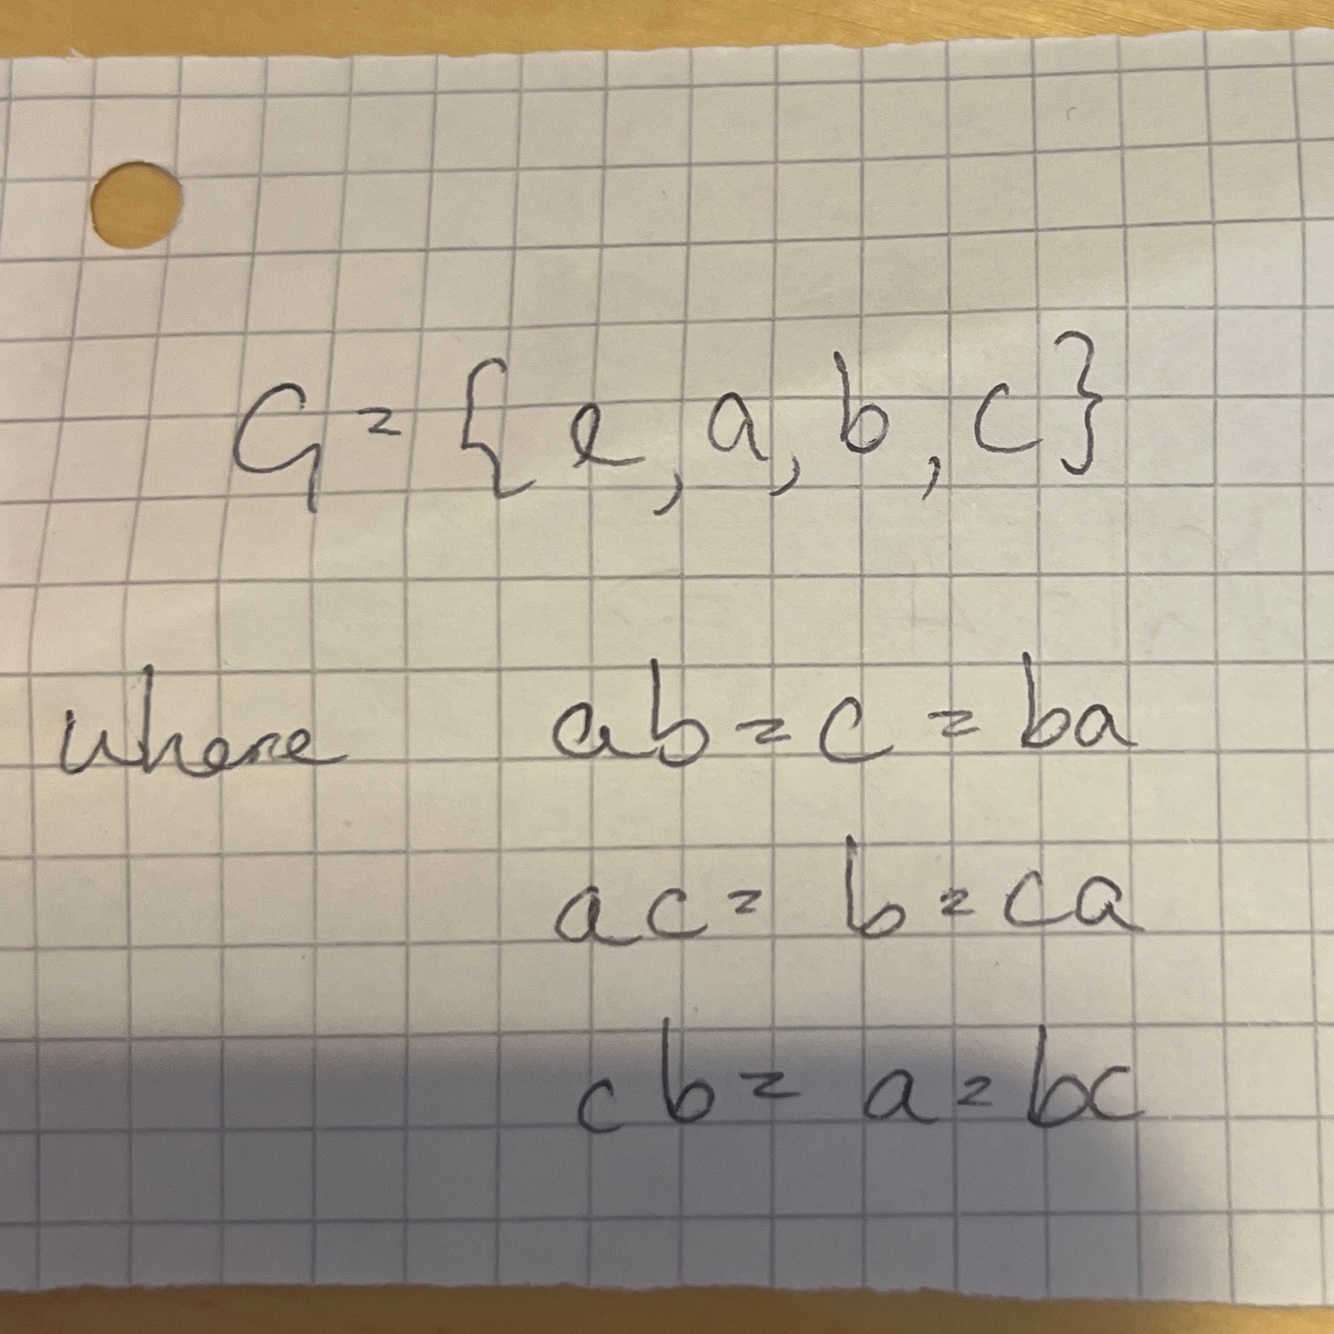 G = {e, a, b, c}
where ab = c = ba
ac = b = ca
cb = a = bc